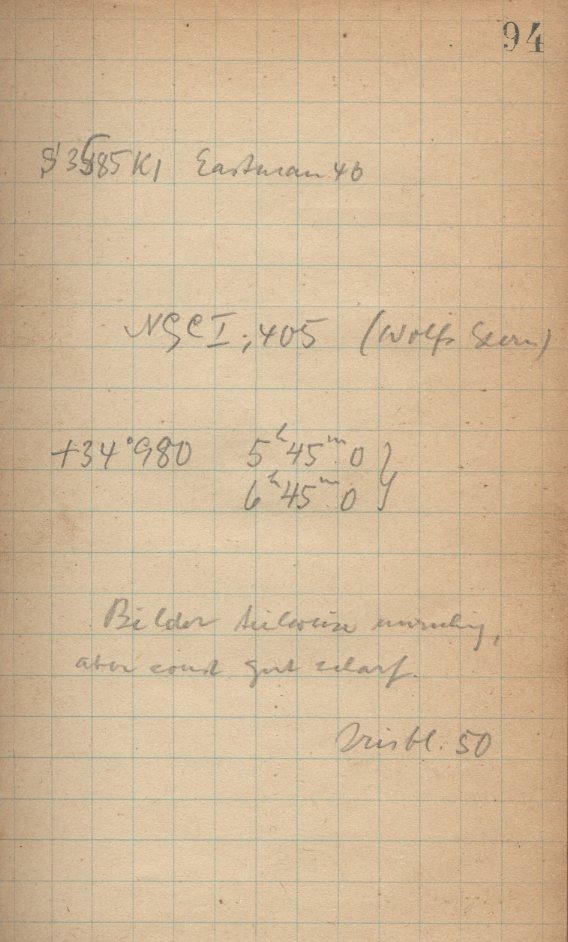 94
S 3585 K1 Eastman 40
NGC I; 405 (Wolfs Stern)
+34°980 5ʰ45ᵐ0 }
6ʰ45ᵐ0
Bilder teilweise unruhig,
aber sonst gut scharf.
Irisbl. 50